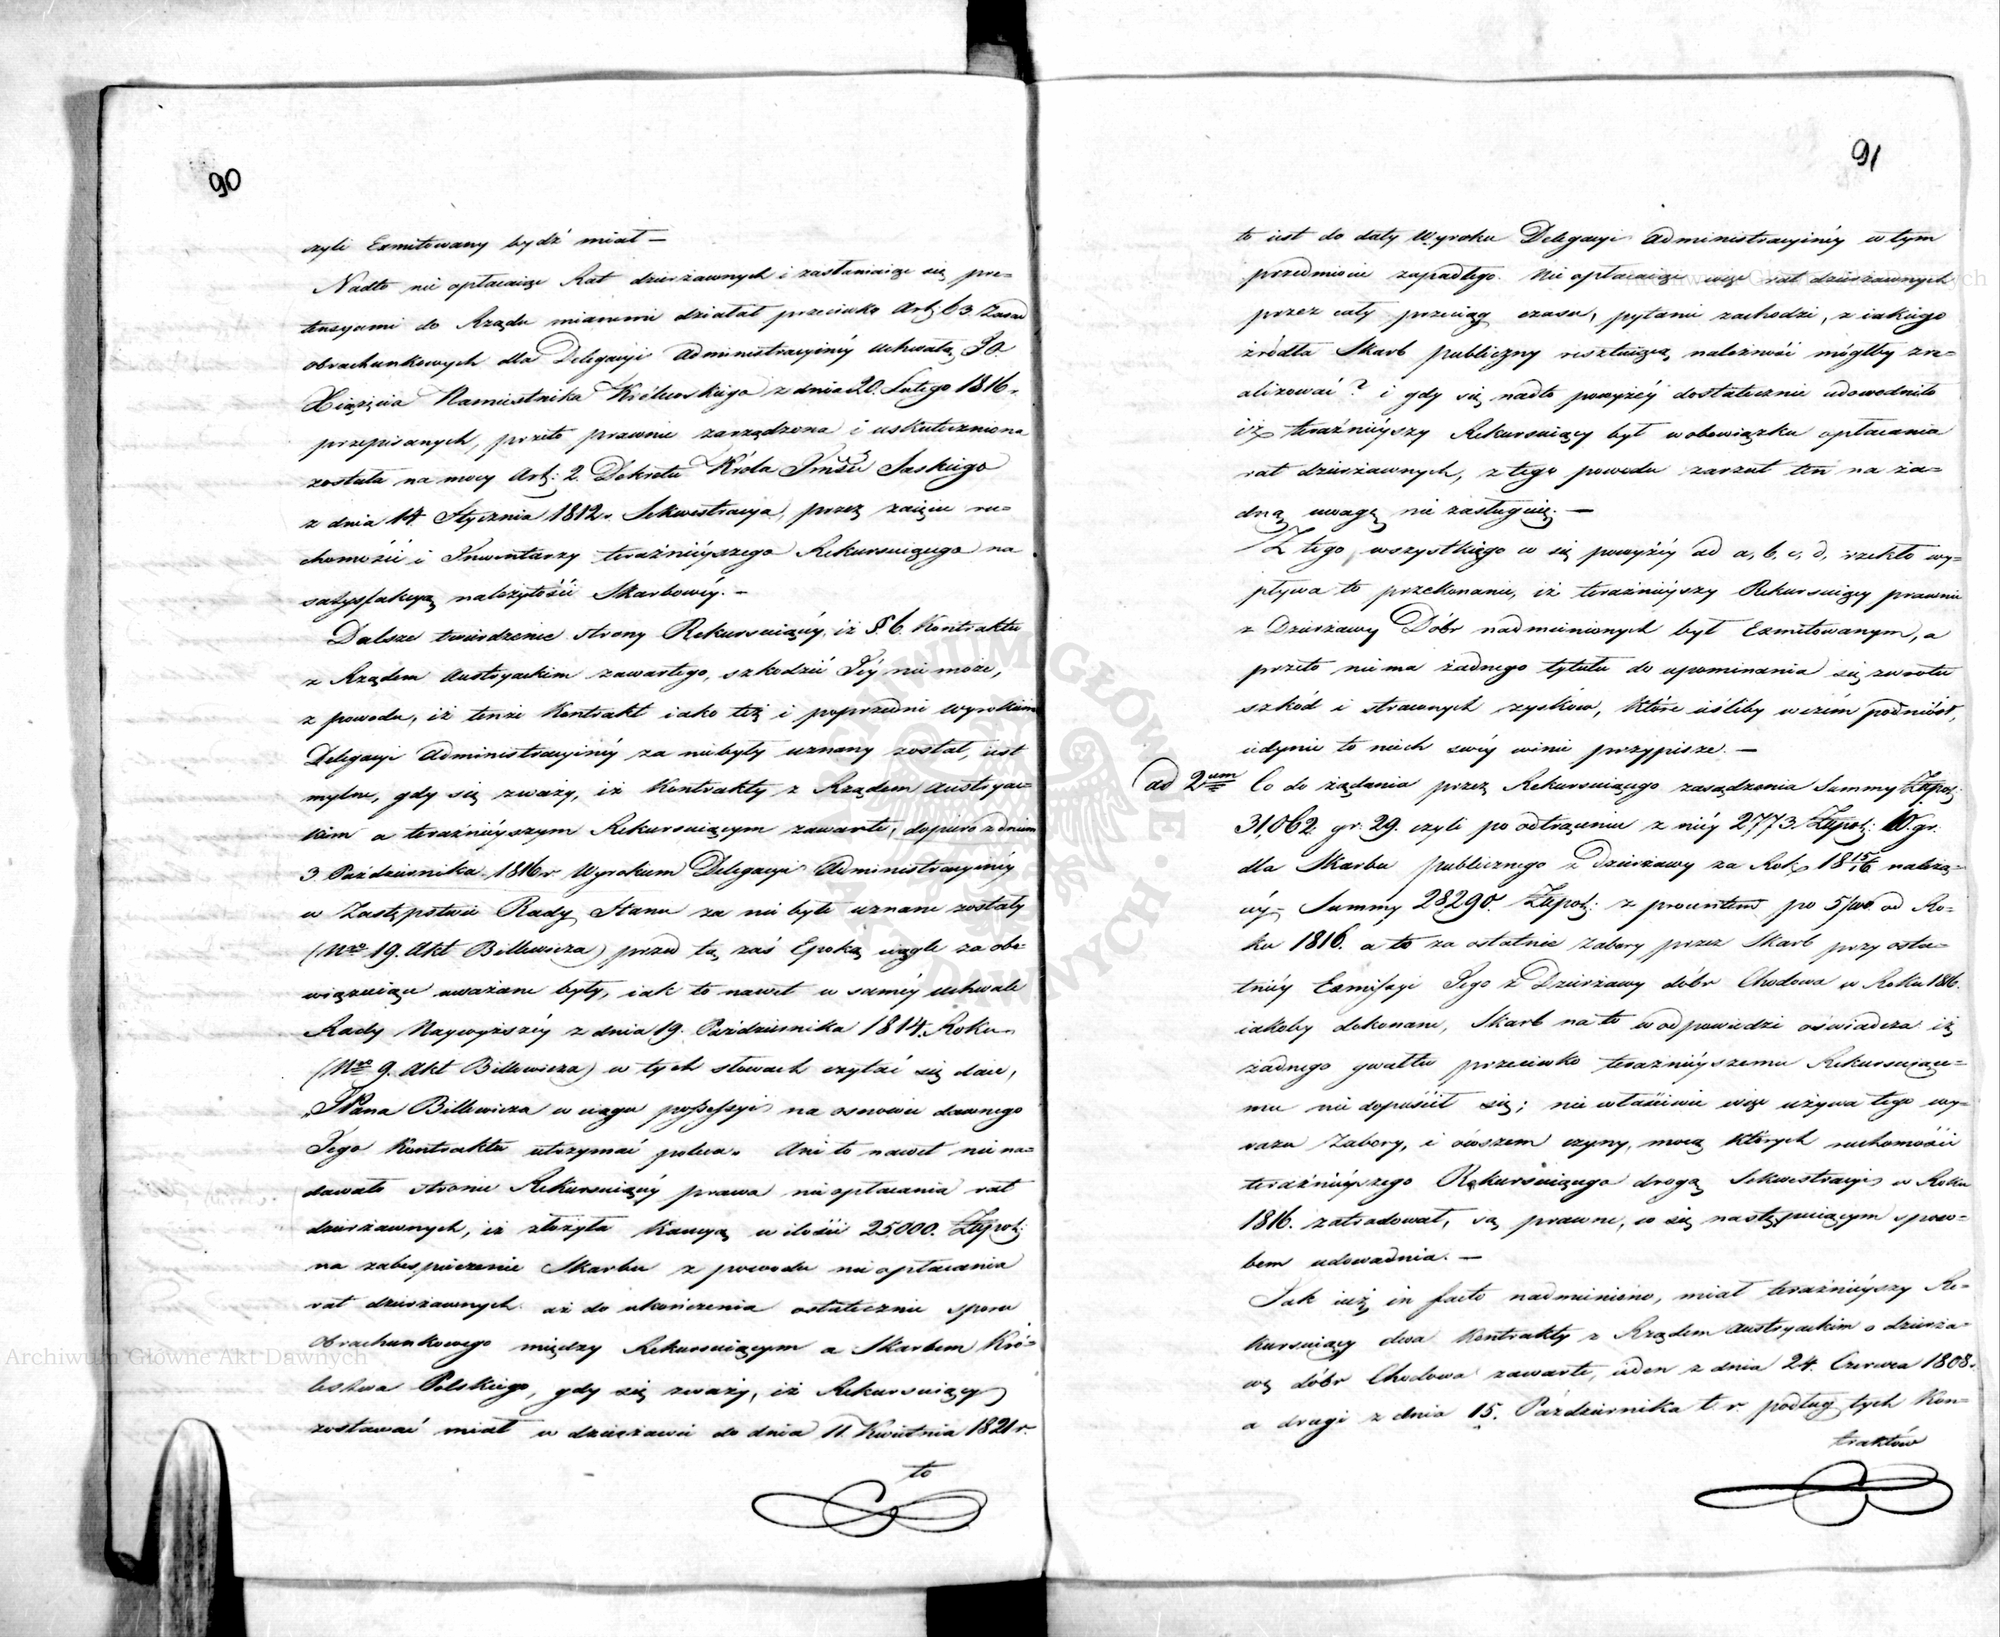 90
czyli Exmitowany bydź miał —
Nadto nie opłacaiąc Rat dzierżawnych i zasłaniaiąc się pre=
tensyami do Rządu mianemi działał przeciwko Art: 63. Zasad
obrachunkowych dla Delegacyi Administracyinéy Uchwałą JO.
Xiążęcia Namiestnika Królewskiego z dnia 20. Lutego 1816 r.
przepisanych, przeto prawnie zarządzona i uskuteczniona
została na mocy Art: 2. Dekretu Króla Saskiego
z dnia 14 Stycznia 1812 r. Sekwestracya, przez zaięcie ru=
chomości i Inwentarzy teraźnieyszego Rekursuiącego na
satysfakcyą należytości Skarbowéy. —
Dalsze twierdzenie strony Rekursuiącéy, iż §. 6. Kontraktu
z Rządem Austryackim zawartego, szkodzić Jéy nie może,
z powodu, iż tenże Kontrakt iako też i poprzedni wyrokiem
Delegacyi Administracyinéy za niebyły uznany został, iest
mylne, gdy się zważy, iż Kontrakty z Rządem Austryac=
kim a teraźnieyszym Rekursuiącym zawarte, dopiero z dniem
3. Października 1816 r. Wyrokiem Delegacyi Administracyinéy
w Zastępstwie Rady Stanu za nie byłe uznane zostały
(Nro 19. Akt Billewicza) przed tą zaś Epoką ciągle za obo=
wiązuiące uważane były, iak to nawet w saméy uchwale
Rady Naywyższéy z dnia 19. Października 1814. Roku
(Nro 9. Akt Billewicza) w tych słowach czytać się daie,
„Pana Billewicza w ciągu possessyi na osnowie dawnego
Jego Kontraktu utrzymać poleca„ Ani to nawet nie na=
dawało stronie Rekursuiącéy prawa nie opłacania rat
dzierżawnych, iż złożyła Kaucyą w ilości 25000. Złłpol:
na zabespieczenie Skarbu z powodu nie opłacania
rat dzierżawnych aż do ukończenia ostatecznie sporu
Obrachunkowego między Rekursuiącym a Skarbem Kró=
lestwa Polskiego, gdy się zważy, iż Rekursuiący
zostawać miał w dzierżawie do dnia 11. Kwietnia 1821 r.
to
91
to iest do daty Wyroku Delegacyi Administracyinéy w tym
przedmiocie zapadłego. Nie opłacaiąc więc rat dzierżawnych
przez cały przeciąg czasu, pytanie zachodzi, z iakiego
źródła Skarb publiczny resztuiącą należność mógłby zre=
alizować? i gdy się nadto powyżéy dostatecznie udowodniło
iż teraźnieyszy Rekursuiący był w obowiązku opłacania
rat dzierżawnych, z tego powodu zarzut ten na ża=
dną uwagę nie zasługuie. —
Z tego wszystkiego co się powyżéy ad a, b, c, d, rzekło wy=
pływa to przekonanie, iż teraźnieyszy Rekursuiący prawnie
z Dzierżawy Dóbr nadmienionych był Exmitowanym, a
przeto nie ma żadnego tytułu do upominania się zwrotu
szkód i straconych zysków, które ieśliby w czém podniósł,
iedynie to niech swéy winie przypisze. —
ad 2um Co do żądania przez Rekursuiącego zasądzenia Summy Złłpol:
31,062. gr. 29. czyli po odtrąceniu z niéy 2,773. Złłpol: 10. gr.
dla Skarbu publicznego z Dzierżawy za Rok 1815/16 należą=
céy Summy 28290. Złłpol: z procentem po 5/100 od Ro=
ku 1816. a to za ostatnie zabory przez Skarb przy osta=
tniéy Exmissyi Jego z Dzierżawy dóbr Chodowa w Roku 1816.
iakoby dokonane, Skarb na to w odpowiedzi oświadcza iż
żadnego gwałtu przeciwko teraźnieyszemu Rekursuiące=
mu nie dopuścił się; nie właściwie więc używa tego wy=
razu Zabory, i owszem czyny, mocą których ruchomości
teraźnieyszego Rekursuiącego drogą Sekwestracyi w Roku
1816. zatradował, są prawne, co się następuiącym sposo=
bem udowadnia. —
Jak iuż in facto nadmieniono, miał teraźnieyszy Re=
kursuiący dwa Kontrakty z Rządem Austryackim o dzierża=
wę dóbr Chodowa zawarte, ieden z dnia 24. Czerwca 1808.
a drugi z dnia 15. Października t. r. podług tych Kon=
traktów